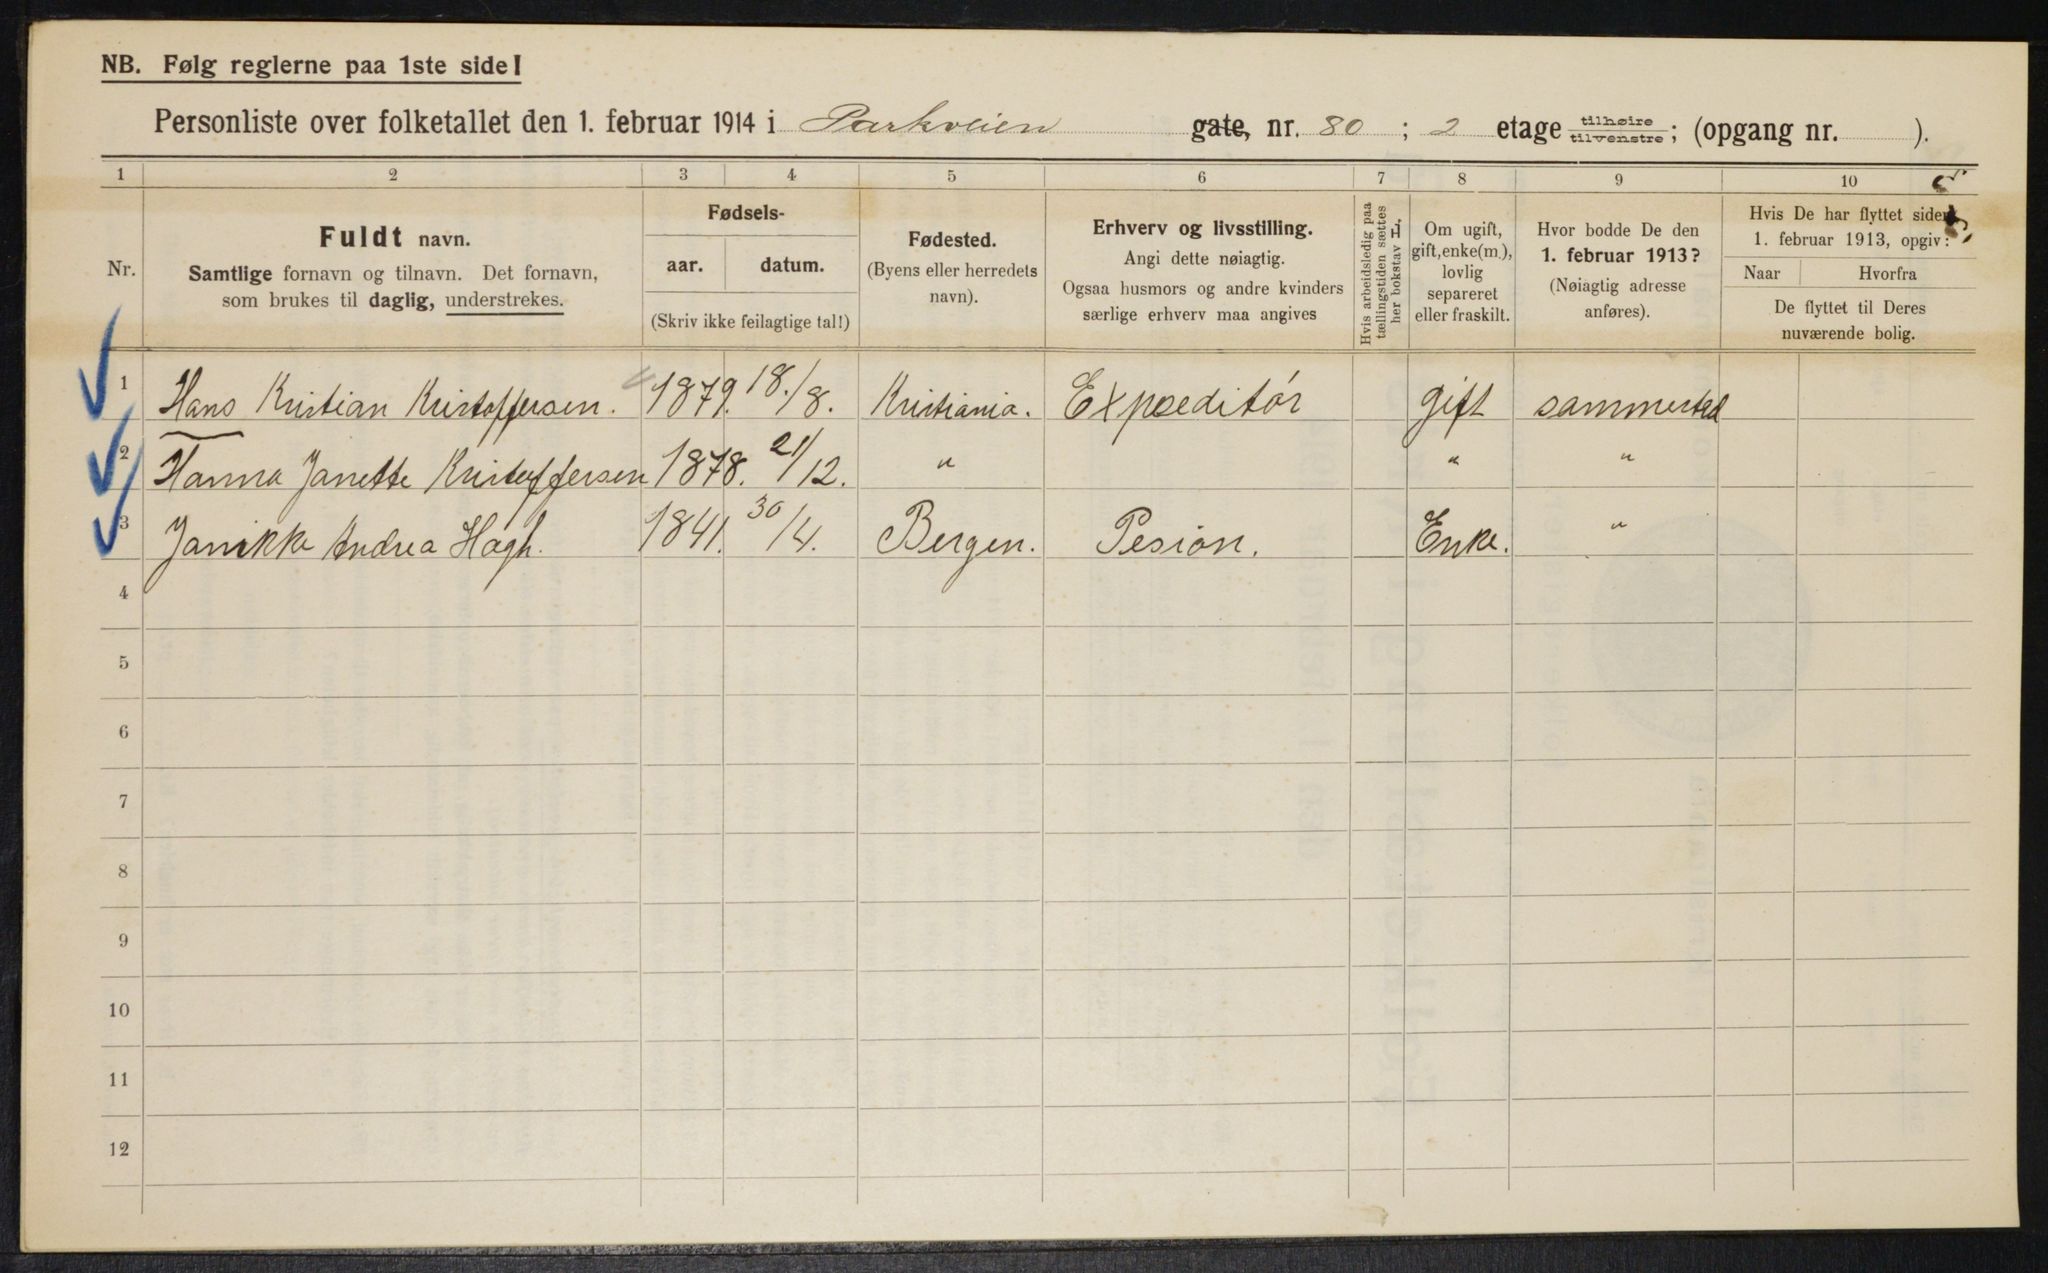 NB. Følg reglerne paa 1ste side!
Personliste over folketallet den 1. februar 1914 i Parkveien gate, nr. 80 ; 2 etage tilhøire tilvenstre; (opgang nr. ).
1 2 3 4 5 6 7 8 9 10
Nr.
Fuldt navn.
Samtlige fornavn og tilnavn. Det fornavn,
som brukes til daglig, understrekes.
Fødsels-
aar. datum.
(Skriv ikke feilagtige tal!)
Fødested.
(Byens eller herredets
navn).
Erhverv og livsstilling.
Angi dette nøiagtig.
Ogsaa husmors og andre kvinders
særlige erhverv maa angives
Hvis arbeidsledig paa
tællingstiden sættes
her bokstav L.
Om ugift,
gift, enke(m.),
lovlig
separeret
eller fraskilt.
Hvor bodde De den
1. februar 1913?
(Nøiagtig adresse
anføres).
Hvis De har flyttet siden
1. februar 1913, opgiv:
Naar Hvorfra
De flyttet til Deres
nuværende bolig.
1 Hans Kristian Kristoffersen. 1879. 18./8. Kristiania. Expeditør gift sammested
2 Hanna Janette Kristoffersen 1878. 21/12. " " "
3 Janikke Andrea Hagh. 1841. 30/4. Bergen. Pesion. Enke. "
4
5
6
7
8
9
10
11
12